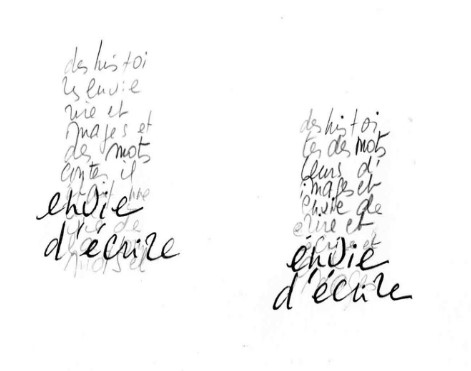 des histoi
res envie
rire et
images et
des mots
contes il
envie
d'écrire
mots et
des histoi
res des mots
leurs d'
images et
envie de
écrire et
envie
d'écrire